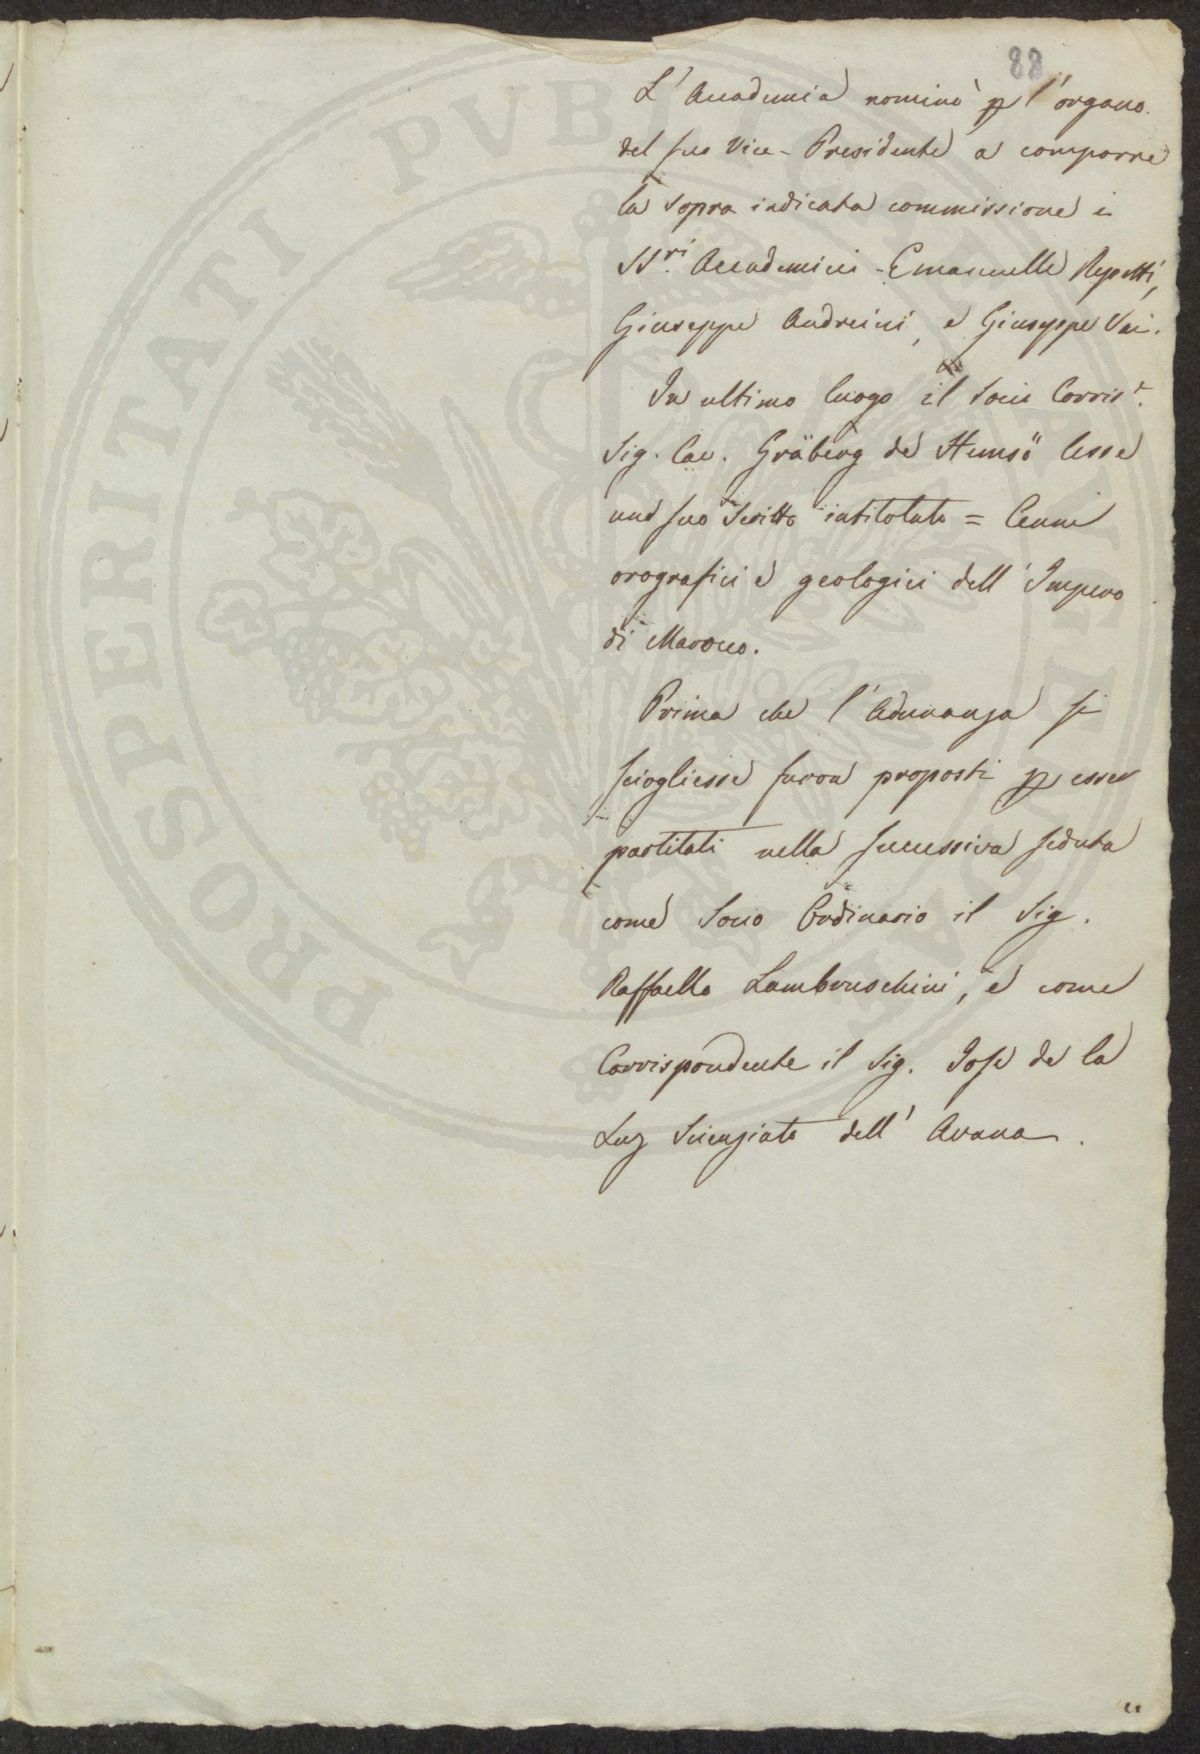 88
L' Accademia nominò p l'organo
del suo Vice-Presidente a comporre
la sopra indicata commissione i
SS.ri Accademici Emanuelle Repetti,
Giuseppe Andreini, e Giuseppe Vai.
In ultimo luogo il Socio Corris.e
Sig. Cav. Gräberg de Hemsö lesse
uno suo Scritto intitolato = Cenni
orografici e geologici dell' Impero
di Marocco.
Prima che l'Adunanza si
sciogliesse furon proposti p esser
partitati nella successiva seduta
come Socio Ordinario il Sig.
Raffaello Lambruschini, e come
Corrispondente il Sig. Jose de la
Luz Scienziato dell' Avana.
PROSPERITATI PUB